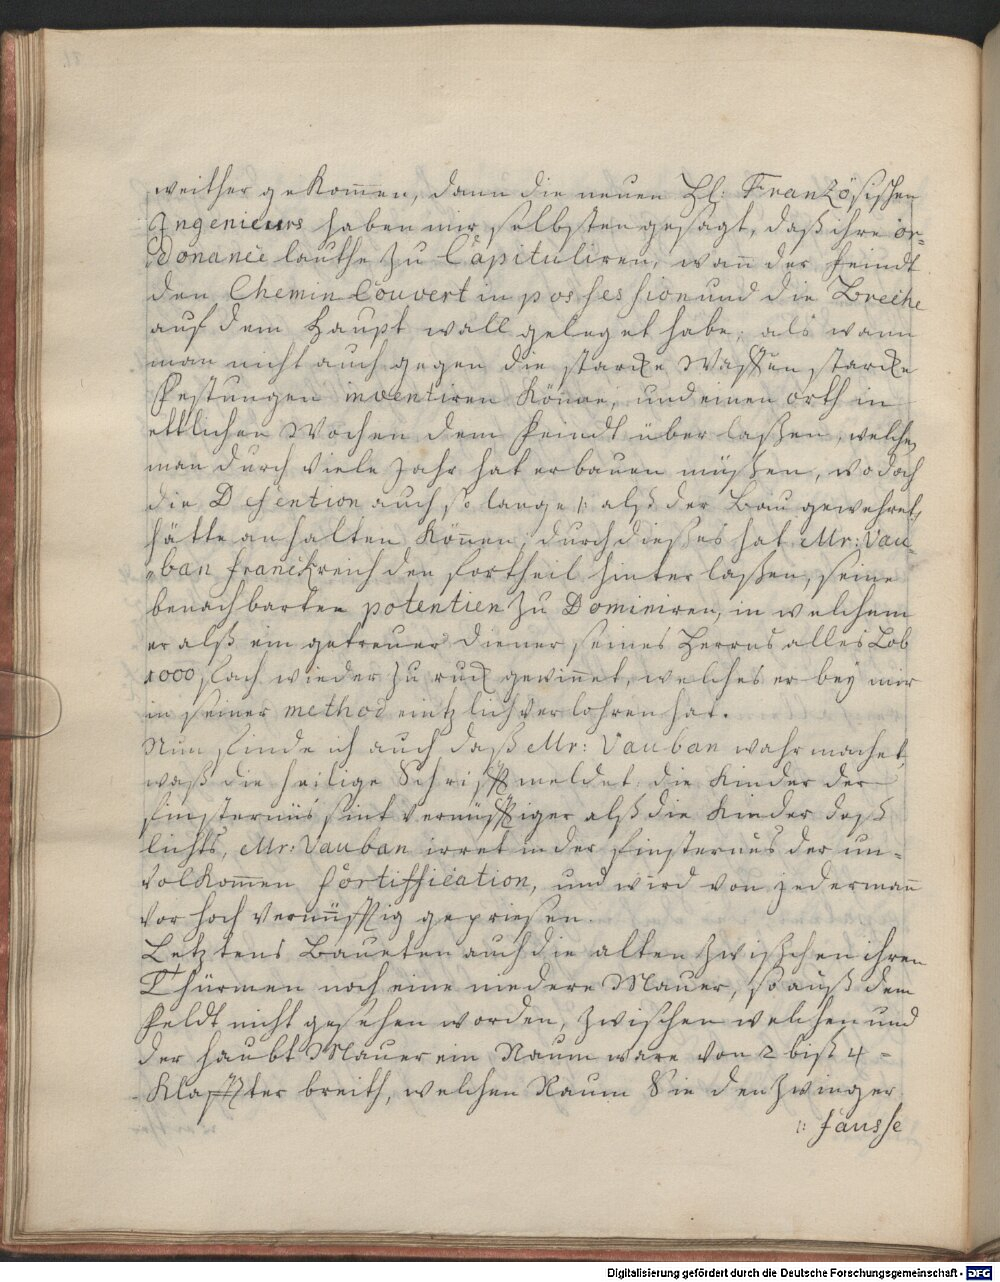 weither gekom̄en, dann die neuen Hl: Französischen
Ingenieurs haben mir selbsten gesagt, daß ihre or=
donance lauthe zu Capituliren, wan̄ der feindt
den Chemin Couvert in possession und die Breche
auf dem Haupt wall geleget habe, als wann
man nicht auch gegen die starcke Waffen starcke
Festungen inventiren könne, und einen orth in
ettlichen Wochen dem feindt über laßen, welchen
man durch viele Jahr hat erbauen müßen, wo doch
die Defention auch so lange /: alß der Bau gewehret,
hätte anhalten können, durch dießes hat Mr: Vau=
=ban franckreich den fortheil hinterlaßen, seine
benachbarten potentien zu Dominiren, in welchem
er alß ein getreuer diener seines Herrns alles Lob
1000 fach wieder zu ruck gewinnet, welches er bey mir
in seiner method eintzlich verlohren hat.
Nun finde ich auch daß Mr: Vauban wahr machet,
waß die heilige Schrifft meldet: die Kinder der
finsternüs sint vernüfftiger alß die Kinder deß
lichts, Mr: Vauban irret in der finsternüs der un=
volkom̄en fortiffication, und wird von jederman̄
vor hoch vernüfftig gepriesen.
Letztens Baueten auch die alten zwischen ihren
Thürmen noch eine niedere Mauer, so auß dem
feldt nicht gesehen worden, zwischen welchen und
der haubt Mauer ein Raum ware von 2 biß 4=
Klaffter breith, welchen Raum Sie den zwinger
/: fausse
Digitalisierung gefördert durch die Deutsche Forschungsgemeinschaft - DFG